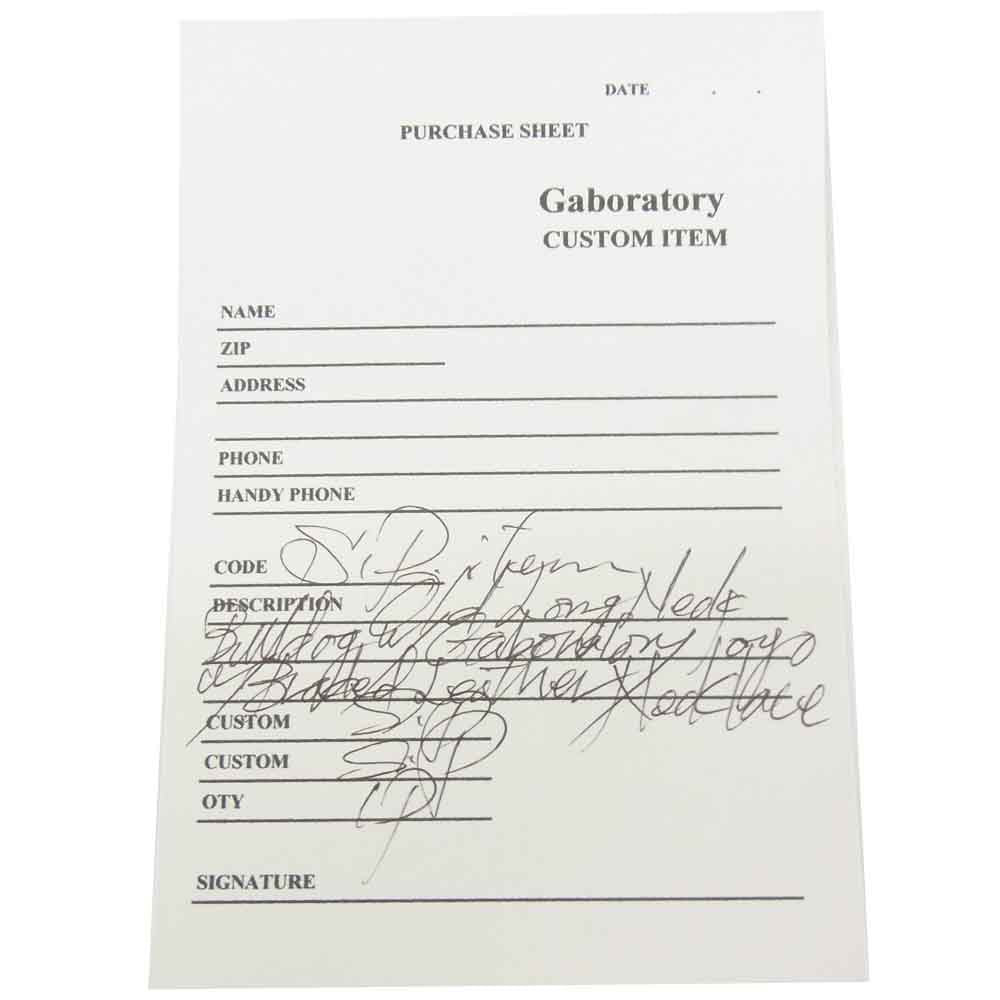 DATE . .
PURCHASE SHEET
Gaboratory
CUSTOM ITEM
NAME
ZIP
ADDRESS
PHONE
HANDY PHONE
CODE S.P. item
DESCRIPTION Long Neck
Bulldog w/ Gaboratory logo
w/ Braded Leather Necklace
CUSTOM S.P
CUSTOM S.P
QTY 1P
SIGNATURE